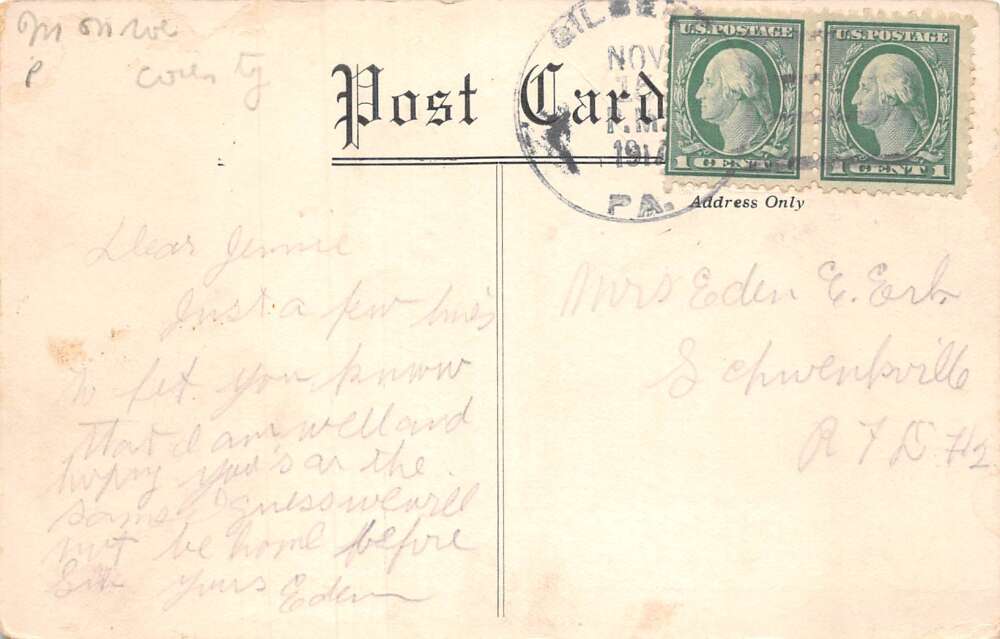 Monroe
P
County
Post Card
GILBERT
NOV
P.M.
1917
PA.
U.S. POSTAGE
1 CENT 1
U.S. POSTAGE
1 CENT 1
Address Only
Dear Jennie
Just a few lines
to let you know
that I am well and
hoping you's ar the
same I guess we will
not be home before
Sun yours Eden
Mrs Eden E. Erb
Schwenkville
R F D #2